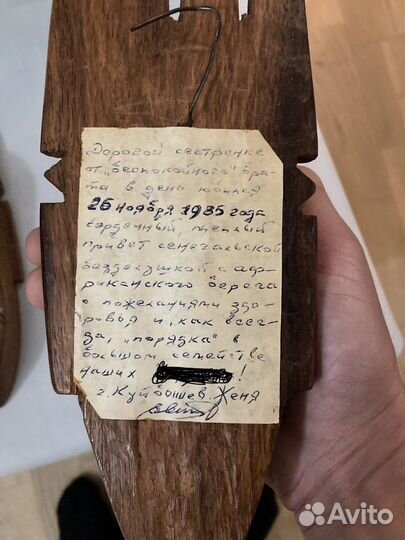 Дорогой сестренке
от „беспокойного" бра-
та в день юбилея
26 ноября 1985 года
сердечный, теплый
привет сенегальской
безделушкой с аф-
риканского берега
с пожеланиями здо-
ровья и, как всег-
да, „порядка" в
большом семействе
наших !
г. Куйбышев. Женя
Avito